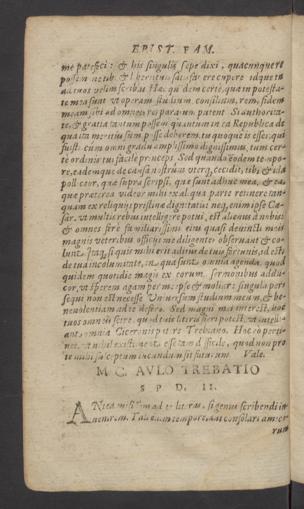 EPIST. FAM.
me patefeci: & his singulis sepe dixi, quacunque re
possem me tibi & liberis tuis satisfacere cupere idque tu
ad tuos velim scribas Hæc qu dem certè, quæ in potesta-
te mea sunt vt operam studium, consilium, rem, fidem
meam sibi ad omnes res paratam putent Si autoritate
te, & gratia tantum possem quantum in ea Republica de
qua ita meritus sum posse deberem, tu quoque is esses, qui
fuisti. cum omni gradu amplissimo dignissimus, tum cer-
te ordinis tui facilè princeps. Sed quando eodem tempo-
re, eademque de causa nostrum vterq, cecidit, tibi & illa
polliceor, quæ supra scripsi, quæ sunt adhuc mea, & ea
que præterea videor mihi ex aliqua parte retinere tan-
quam ex reliquijs pristinæ dignitatis neq, enim ipse Cæ-
sar. vt multis rebus intelligere potui, est alienus à nobis:
& omnes ferè familiarissimi eius quasi deuincti meis
magnis veteribus officijs me diligenter obseruant & co-
lunt Itaq, si quis mihi erit aditus de tuis fortunis, id est
de tua incolumitate, in qua sunt omnia agendi quod
quidem quotidie magis ex eorum sermonibus adducor
vt sperem agam per me ipse & moliar: singula persequi
non est necesse Vniuersum studium meum, & be-
neuolentiam ad te defero. Sed magni mea interest, hoc
tuos omnes scire, quod tuis literis fieri potest, vt intelligant
omnia Ciceronis patere Trebiano. Hoc eò perti-
net, vt nihil existiment esse tam difficile, quod non pro
te mihi susceptum iucundum sit futurum Vale.
M. C. AVLO TREBATIO
S P. D. II.
ANtea misissem ad te literas, si genus scribendi in-
uenirem. Tali enim tempore aut consolari amico-
rum